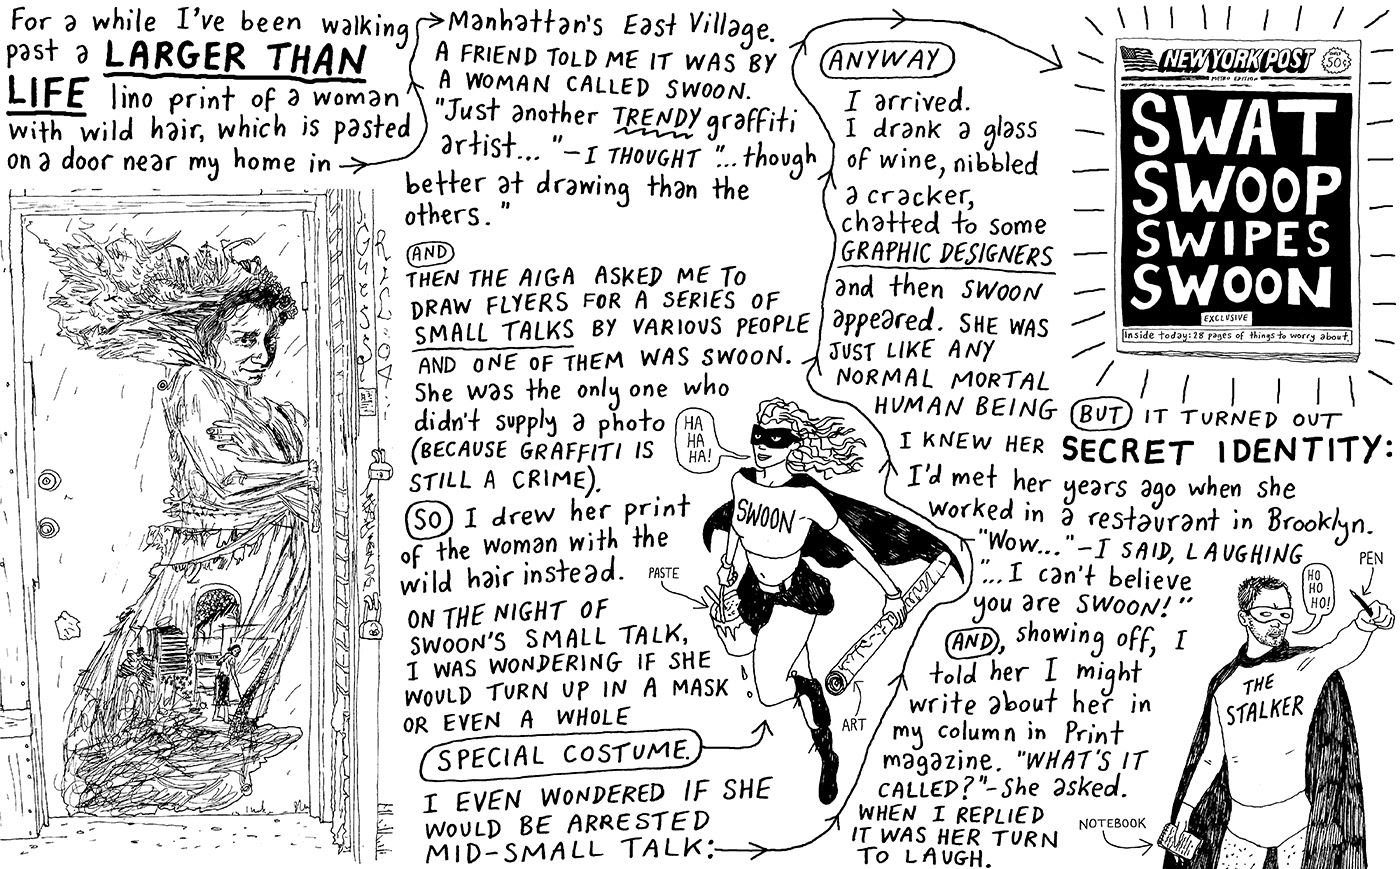 For a while I've been walking
past a LARGER THAN
LIFE lino print of a woman
with wild hair, which is pasted
on a door near my home in
Manhattan's East Village.
A FRIEND TOLD ME IT WAS BY
A WOMAN CALLED SWOON.
"Just another TRENDY graffiti
artist... "-I THOUGHT "...though
better at drawing than the
others."
AND
THEN THE AIGA ASKED ME TO
DRAW FLYERS FOR A SERIES OF
SMALL TALKS BY VARIOUS PEOPLE
AND ONE OF THEM WAS SWOON.
She was the only one who
didn't supply a photo
(BECAUSE GRAFFITI IS
STILL A CRIME).
SO I drew her print
of the woman with the
wild hair instead.
ON THE NIGHT OF
SWOON'S SMALL TALK,
I WAS WONDERING IF SHE
WOULD TURN UP IN A MASK
OR EVEN A WHOLE
SPECIAL COSTUME.
I EVEN WONDERED IF SHE
WOULD BE ARRESTED
MID-SMALL TALK:
HA
HA
HA!
SWOON
PASTE
ART
ANYWAY
I arrived.
I drank a glass
of wine, nibbled
a cracker,
chatted to some
GRAPHIC DESIGNERS
and then SWOON
appeared. SHE WAS
JUST LIKE ANY
NORMAL MORTAL
HUMAN BEING
NEW YORK POST
ONLY
50¢
METRO EDITION
SWAT
SWOOP
SWIPES
SWOON
EXCLUSIVE
Inside today: 28 pages of things to worry about.
BUT IT TURNED OUT
I KNEW HER SECRET IDENTITY:
I'd met her years ago when she
worked in a restaurant in Brooklyn.
"Wow..."-I SAID, LAUGHING
"...I can't believe
you are SWOON!"
AND, showing off, I
told her I might
write about her in
my column in Print
magazine. "WHAT'S IT
CALLED?"-She asked.
WHEN I REPLIED
IT WAS HER TURN
TO LAUGH.
HO
HO
HO!
PEN
THE
STALKER
NOTEBOOK